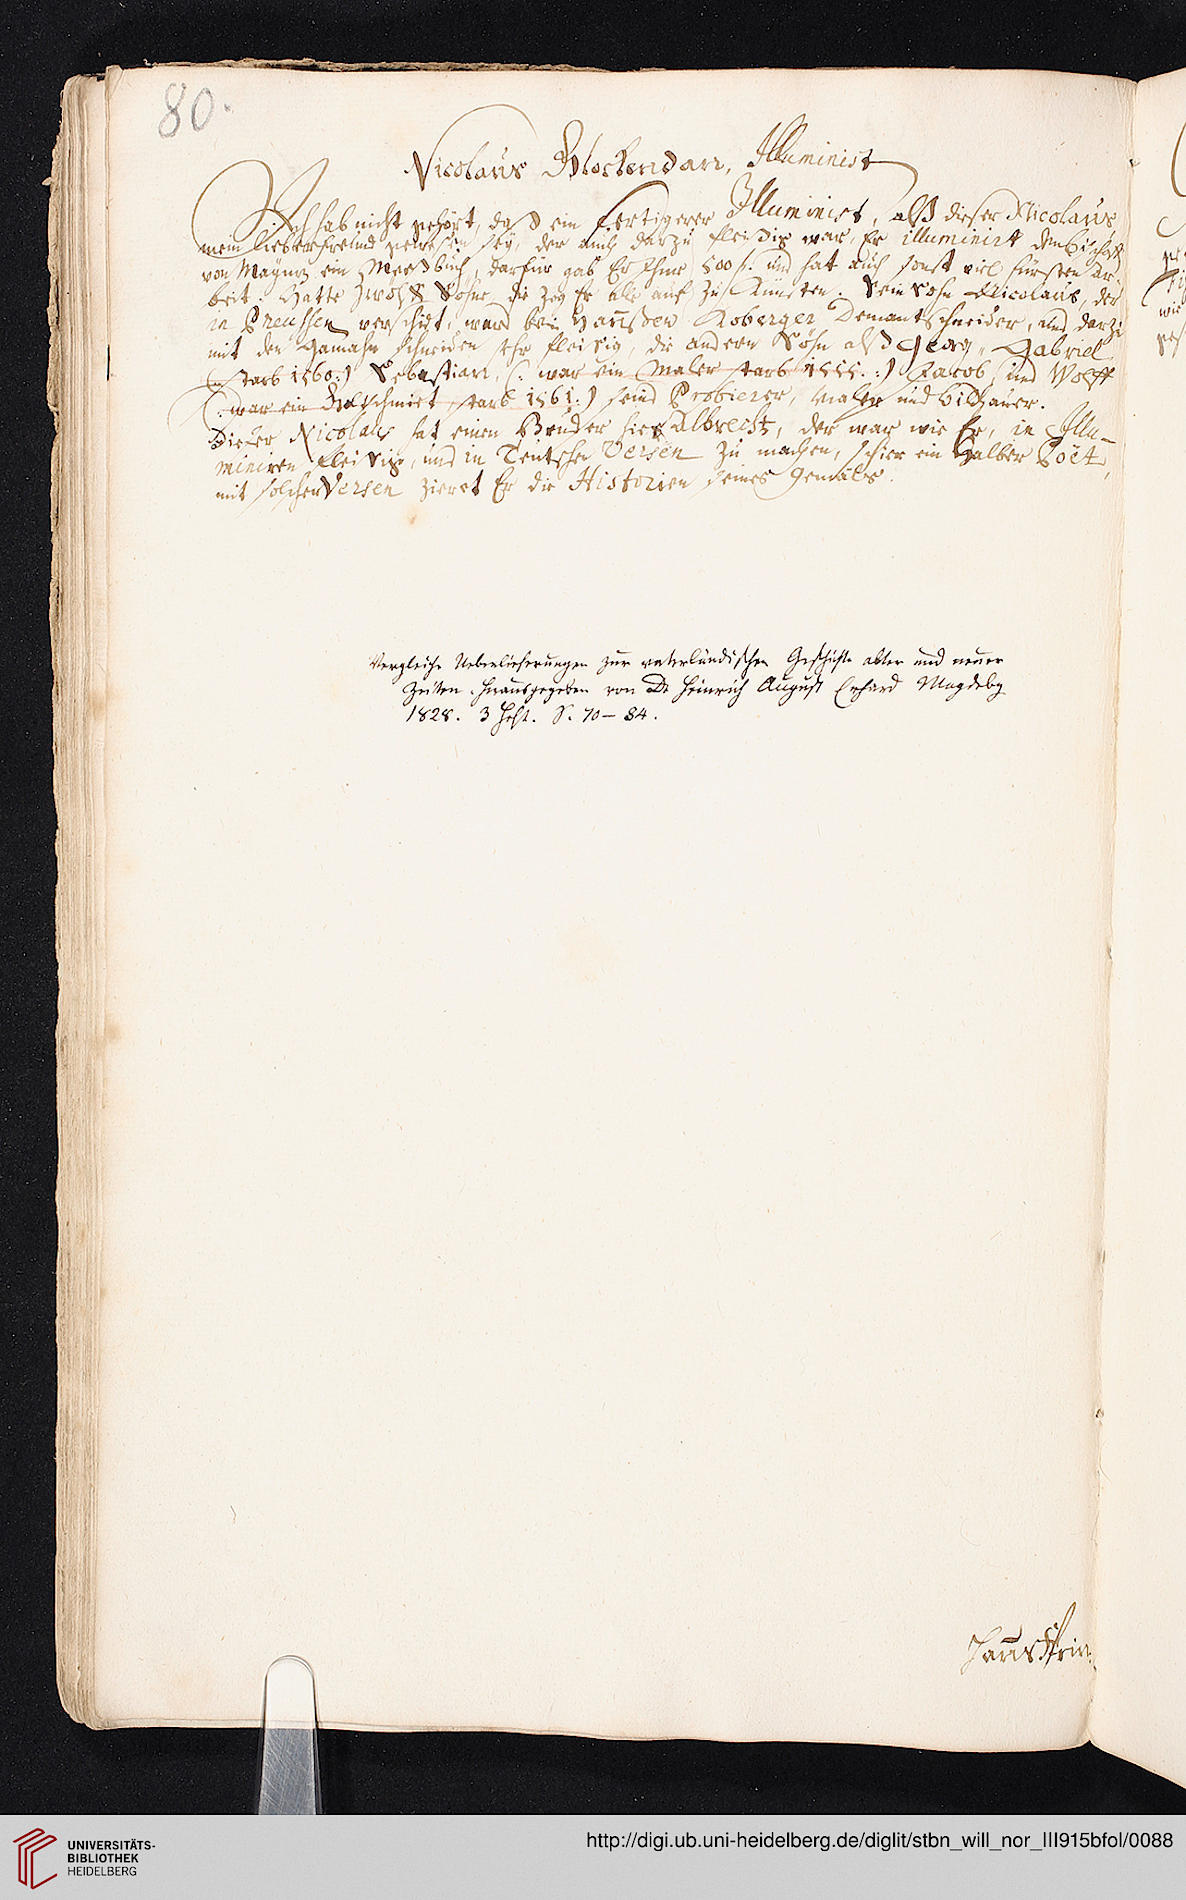 80.
Nicolaus Glockendan, Illuminist
Ich hab nicht gehört, daß ein fertigerer Illuminist, alß dieser Nicolaus,
mein lieber freund gewesen sey, der auch darzu fleißig war, Er illuminirt dem Bischoff
von Maÿntz ein Meßbuch, darfür gab Er Ihme 500 f. und hat auch sonst viel fürsten Ar-
beit. Hatte Zwölff Söhne, die Zog Er alle auf Zu Künsten. Sein Sohn Nicolaus, der
in Preussen verschickt, ward bein Hannßen Koberger Demantschneider, und darzu
mit den Gamahn schneiden sehr fleisig, die andern Söhn alß Georg, Gabriel
starb 1560:) Sebastian, (: war ein Maler starb 1555.:) Jacob und Wolff
(: war ein Goltschmiet, starb 1561:) seind Probierer, Maler und Bildhauer.
Dieser Nicolaus hat einen Bruder hies Albrecht, der war wie Er, in Illu-
miniren fleisig, und in Teutschen Versen Zu machen, schier ein Halber Poët,
mit solchen Versen Zieret Er die Historien seines Gemäls.
Vergleiche Ueberlieferungen zur vaterländischen Geschichte alter und neuer
Zeiten. Herausgegeben von Dr Heinrich August Erhard Magdebg
1828. 3 Heft. S. 70–84.
Hanns
UNIVERSITÄTS-
BIBLIOTHEK
HEIDELBERG
http://digi.ub.uni-heidelberg.de/diglit/stbn_will_nor_III915bfol/0088